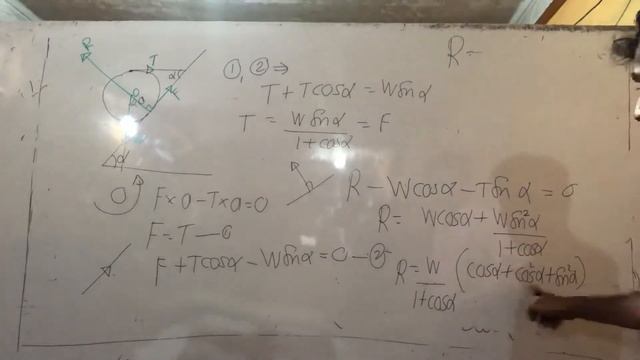 R T α
F
W
α
①, ② ⇒
T + Tcosα = Wsinα
T = Wsinα / 1+cosα = F
R =
O F×a - T×a = 0
F = T — ①
F + Tcosα - Wsinα = 0 — ②
R - Wcosα - Tsinα = 0
R = Wcosα + Wsin²α / 1+cosα
R = W / 1+cosα (cosα + cos²α + sin²α)